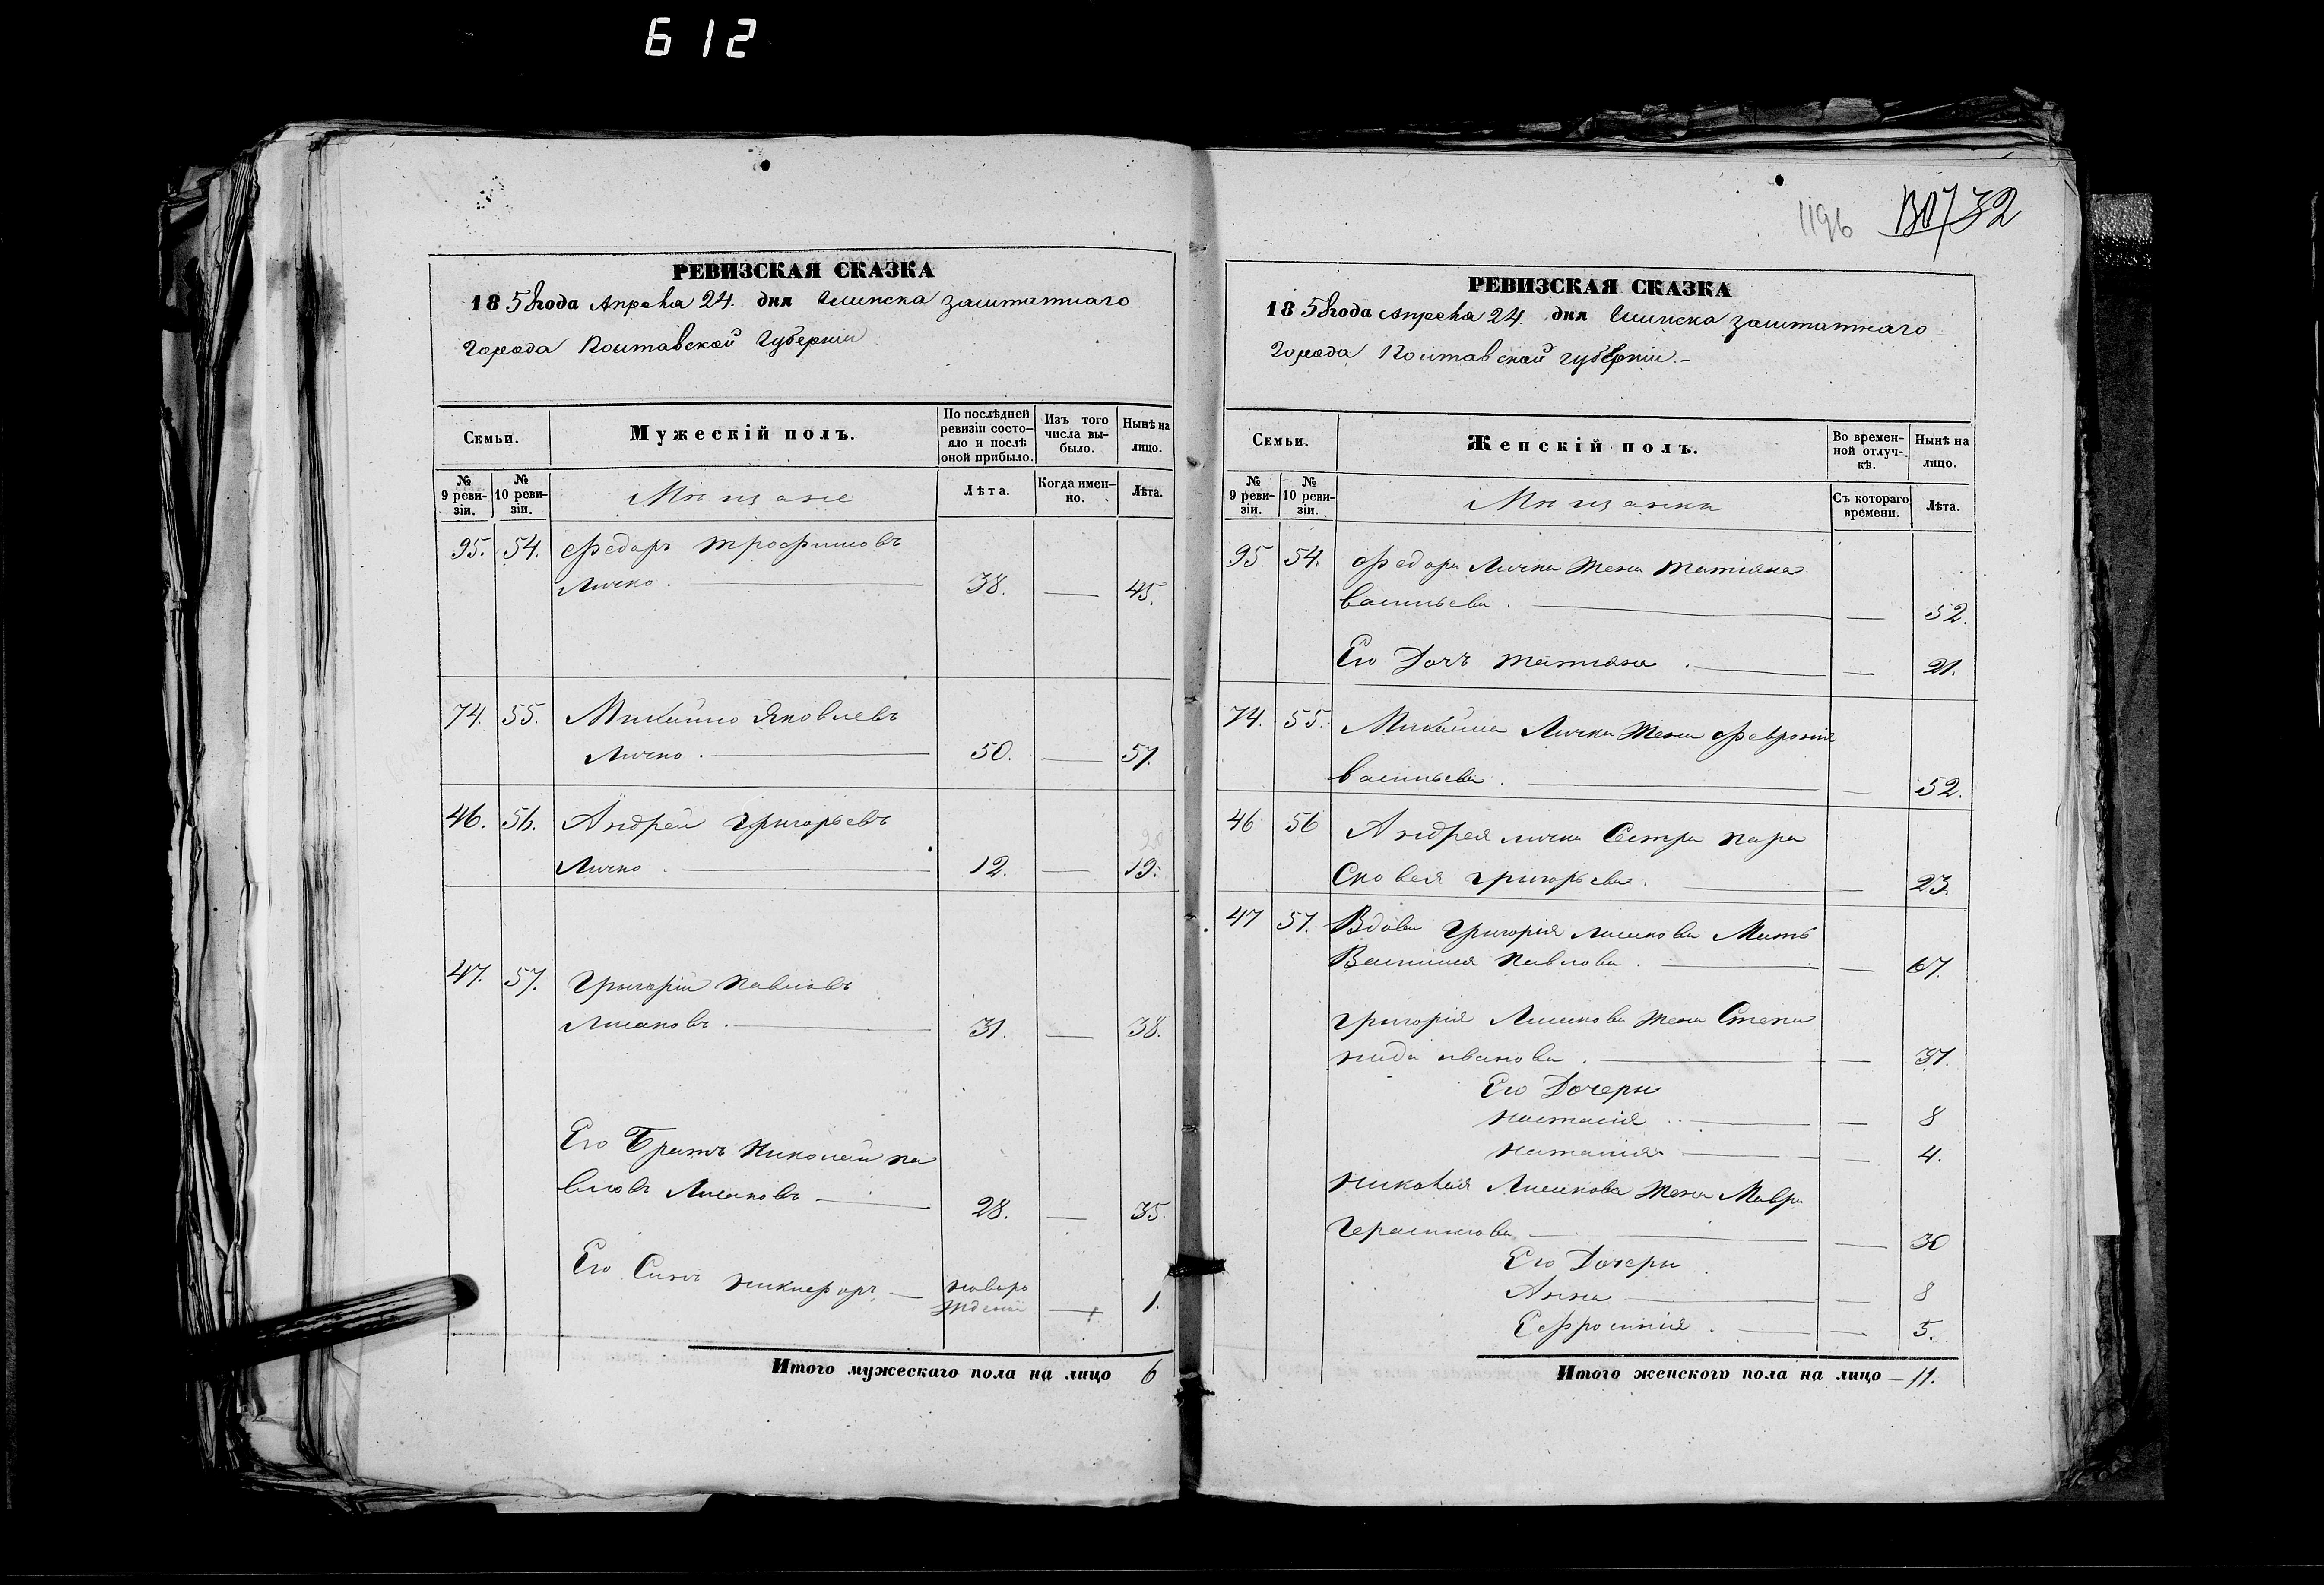 612
1196 732
РЕВИЗСКАЯ СКАЗКА
1858 года Апреля 24. дня Глинска заштатнаго
города Полтавской Губернии
Семьи.
Мужескій полъ.
По послѣдней ревизіи состо-
яло и послѣ оной прибыло.
Изъ того числа вы-
было.
Нынѣ на лицо.
№ 9 реви-
зіи.
№ 10 реви-
зіи.
Мѣщане
Лѣта.
Когда имен-
но.
Лѣта.
95. 54. Федоръ Трофимовъ
Личко. 38. — 45.
74. 55. Михайло Яковлевъ
Личко. 50. — 57.
46. 56. Андрей Григорьевъ
Личко. 12. — 19.
47. 57. Григорій Павловъ
Лисаковъ. 31. — 38.
Его Братъ Николай Па
вловъ Лисаковъ — 28. — 35.
Его Синъ Никифоръ — новоро
жденій — 1.
Итого мужескаго пола на лицо 6
РЕВИЗСКАЯ СКАЗКА
1858 года Апреля 24. дня Глинска заштатнаго
города Полтавской губерніи. —
Семьи.
Женскій полъ.
Во времен-
ной отлуч-
кѣ.
Нынѣ на лицо.
№ 9 реви-
зіи.
№ 10 реви-
зіи.
Мѣщанки
Съ котораго времени.
Лѣта.
95. 54. Федора Личка жена Татияна
Васильева. — 52.
Его Дочъ Татияна. — 21.
74. 55. Михайла Личка жена Феврония
Васильева. — 52.
46 56 Андрея Личка Сестра Пара
Сковея Григорьева. — 23.
47 57. Вдова Григорія Лисакова Мать
Павлова. — 67.
Григорія Лисакова жена Степа
нида Иванова. — 37.
Его Дочери
Настасія. — 8
Наталия — 4.
Николая Лисакова жена Мавра
Герасимова — 30
Его Дочери
Анна — 8
Ефросинія. — 5.
Итого женского пола на лицо — 11.